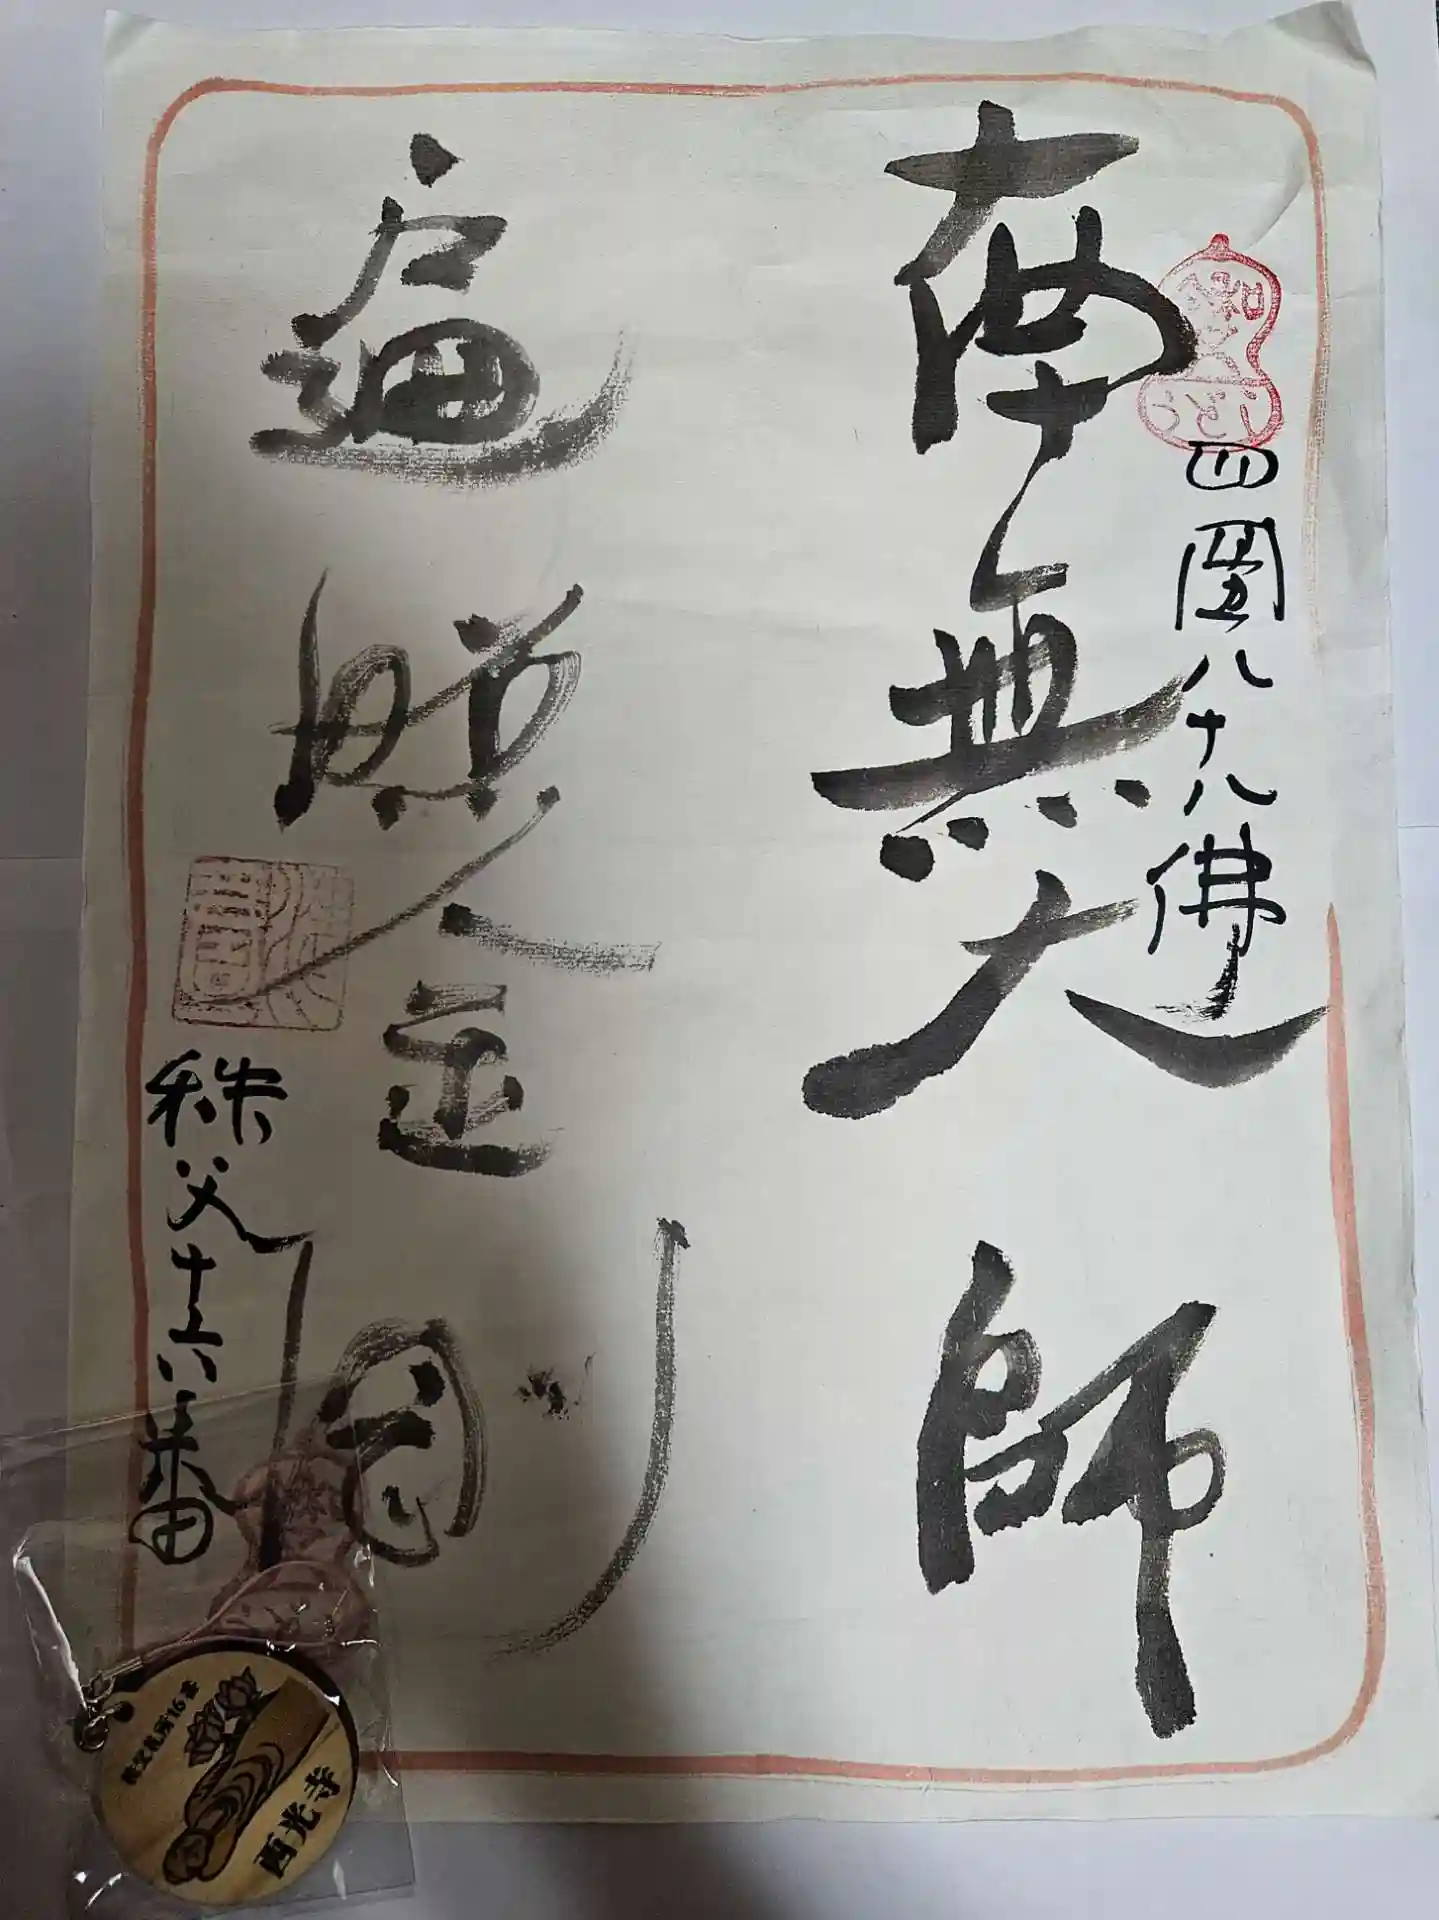 四國八十八佛
南無大師
遍照金剛
秩父十六番
秩父札所16番
西光寺